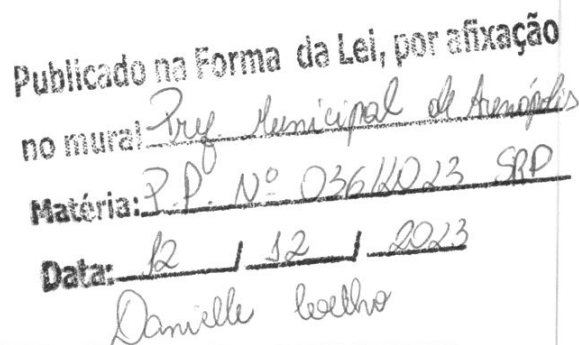 Publicado na Forma da Lei, por afixação
no mural Pref. Municipal de Arenópolis
Matéria: P.P. Nº 036/2023 SRP
Data: 12 / 12 / 2023
Danielle Coelho